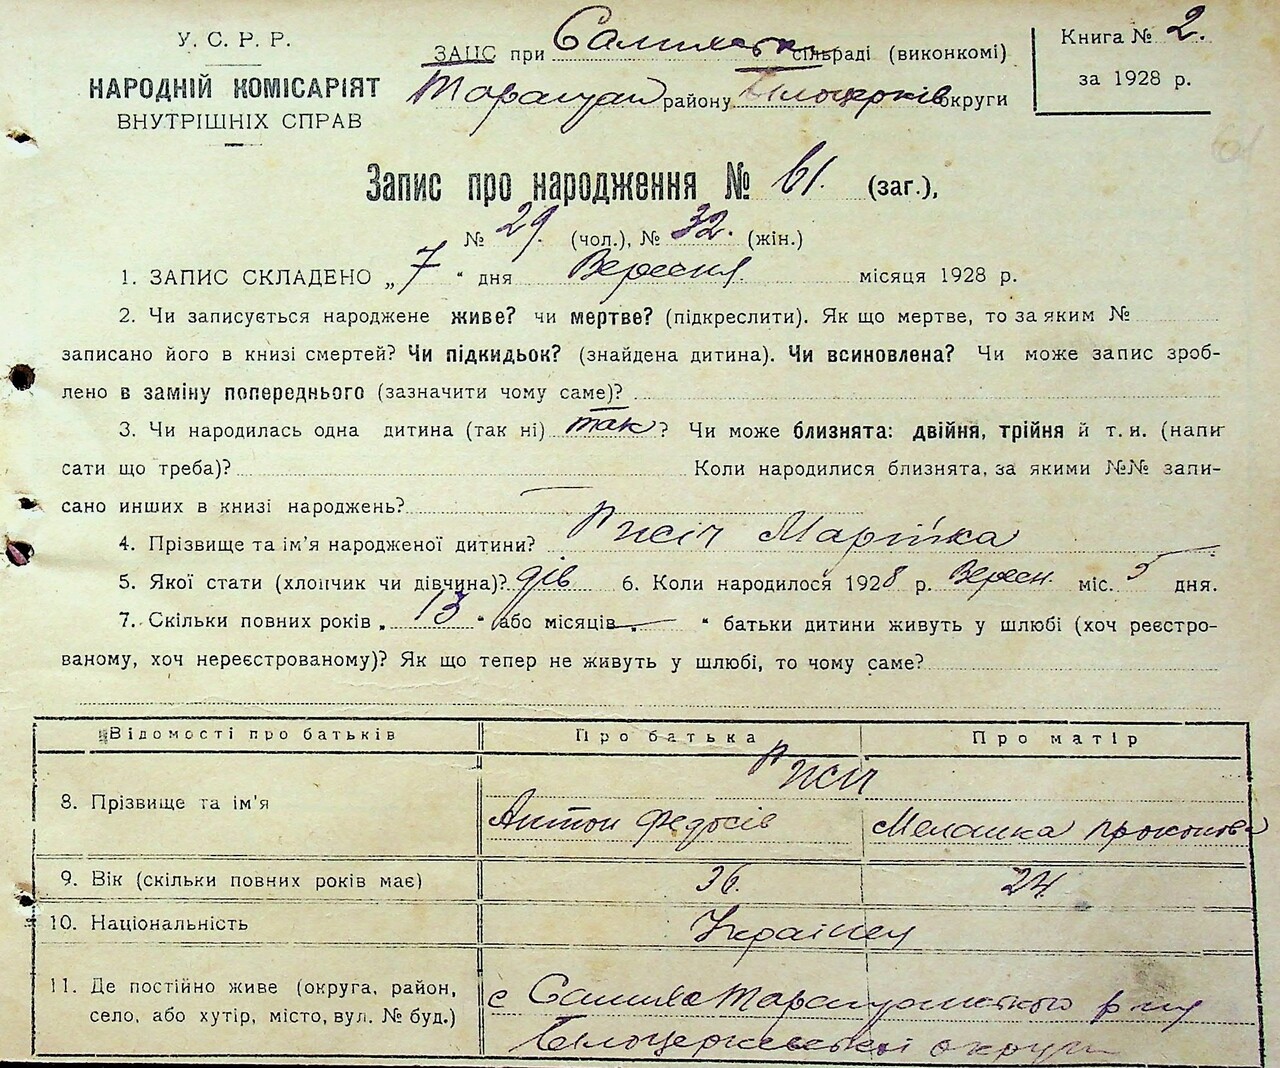 У. С. Р. Р.
НАРОДНІЙ КОМІСАРІЯТ
ВНУТРІШНІХ СПРАВ
ЗАПС при сільраді (виконкомі)
Таращан району Білоцерків округи
Книга № 2.
за 1928 р.
Запис про народження № 61. (заг.),
№ 29. (чол.), № 32. (жін.)
1. ЗАПИС СКЛАДЕНО „7" дня Вересня місяця 1928 р.
2. Чи записується народжене живе? чи мертве? (підкреслити). Як що мертве, то за яким №
записано його в книзі смертей? Чи підкидьок? (знайдена дитина). Чи всиновлена? Чи може запис зроб-
лено в заміну попереднього (зазначити чому саме)?
3. Чи народилась одна дитина (так ні) так? Чи може близнята: двійня, трійня й т. и. (напи-
сати що треба)? Коли народилися близнята, за якими №№ запи-
сано инших в книзі народжень?
4. Прізвище та ім'я народженої дитини? Рисіч Марійка
5. Якої стати (хлопчик чи дівчина)? дів 6. Коли народилося 1928 р. Вересн. міс. 5 дня.
7. Скільки повних років „13" або місяців „—" батьки дитини живуть у шлюбі (хоч реєстро-
ваному, хоч нереєстрованому)? Як що тепер не живуть у шлюбі, то чому саме?
Відомості про батьків Про батька Про матір
8. Прізвище та ім'я Рисіч
Антон Федосів Мелашка Прокопова
9. Вік (скільки повних років має) 36. 24.
10. Національність Українец
11. Де постійно живе (округа, район,
село, або хутір, місто, вул. № буд.)
с Таращанського р-ну
Білоцерківської округи